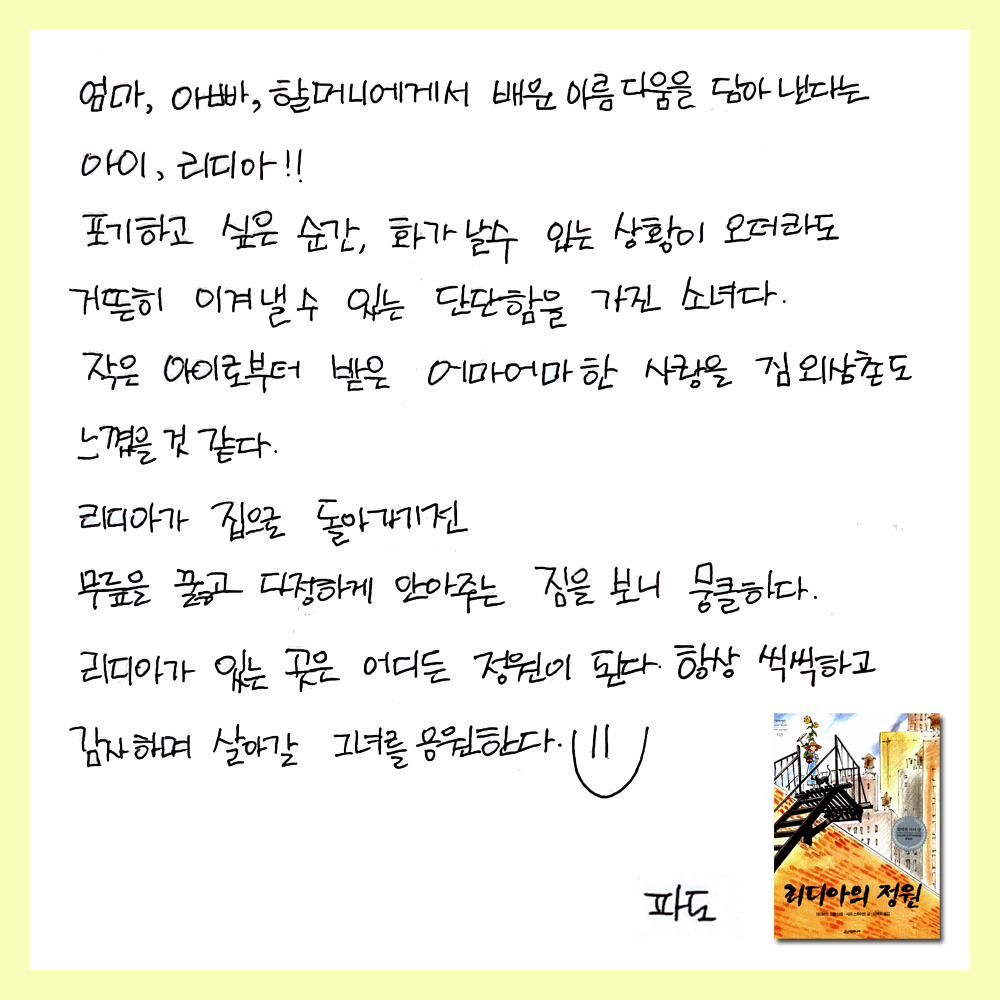 엄마, 아빠, 할머니에게서 배운 아름다움을 담아 낸다는
아이, 리디아!!
포기하고 싶은 순간, 화가 날수 있는 상황이 오더라도
거뜬히 이겨낼 수 있는 단단함을 가진 소녀다.
작은 아이로부터 받은 어마어마한 사랑을 짐 외삼촌도
느꼈을 것 같다.
리디아가 집으로 돌아가기전
무릎을 꿇고 다정하게 안아주는 짐을 보니 뭉클하다.
리디아가 있는 곳은 어디든 정원이 된다. 항상 씩씩하고
감사하며 살아갈 그녀를 응원한다.
파도
리디아의 정원